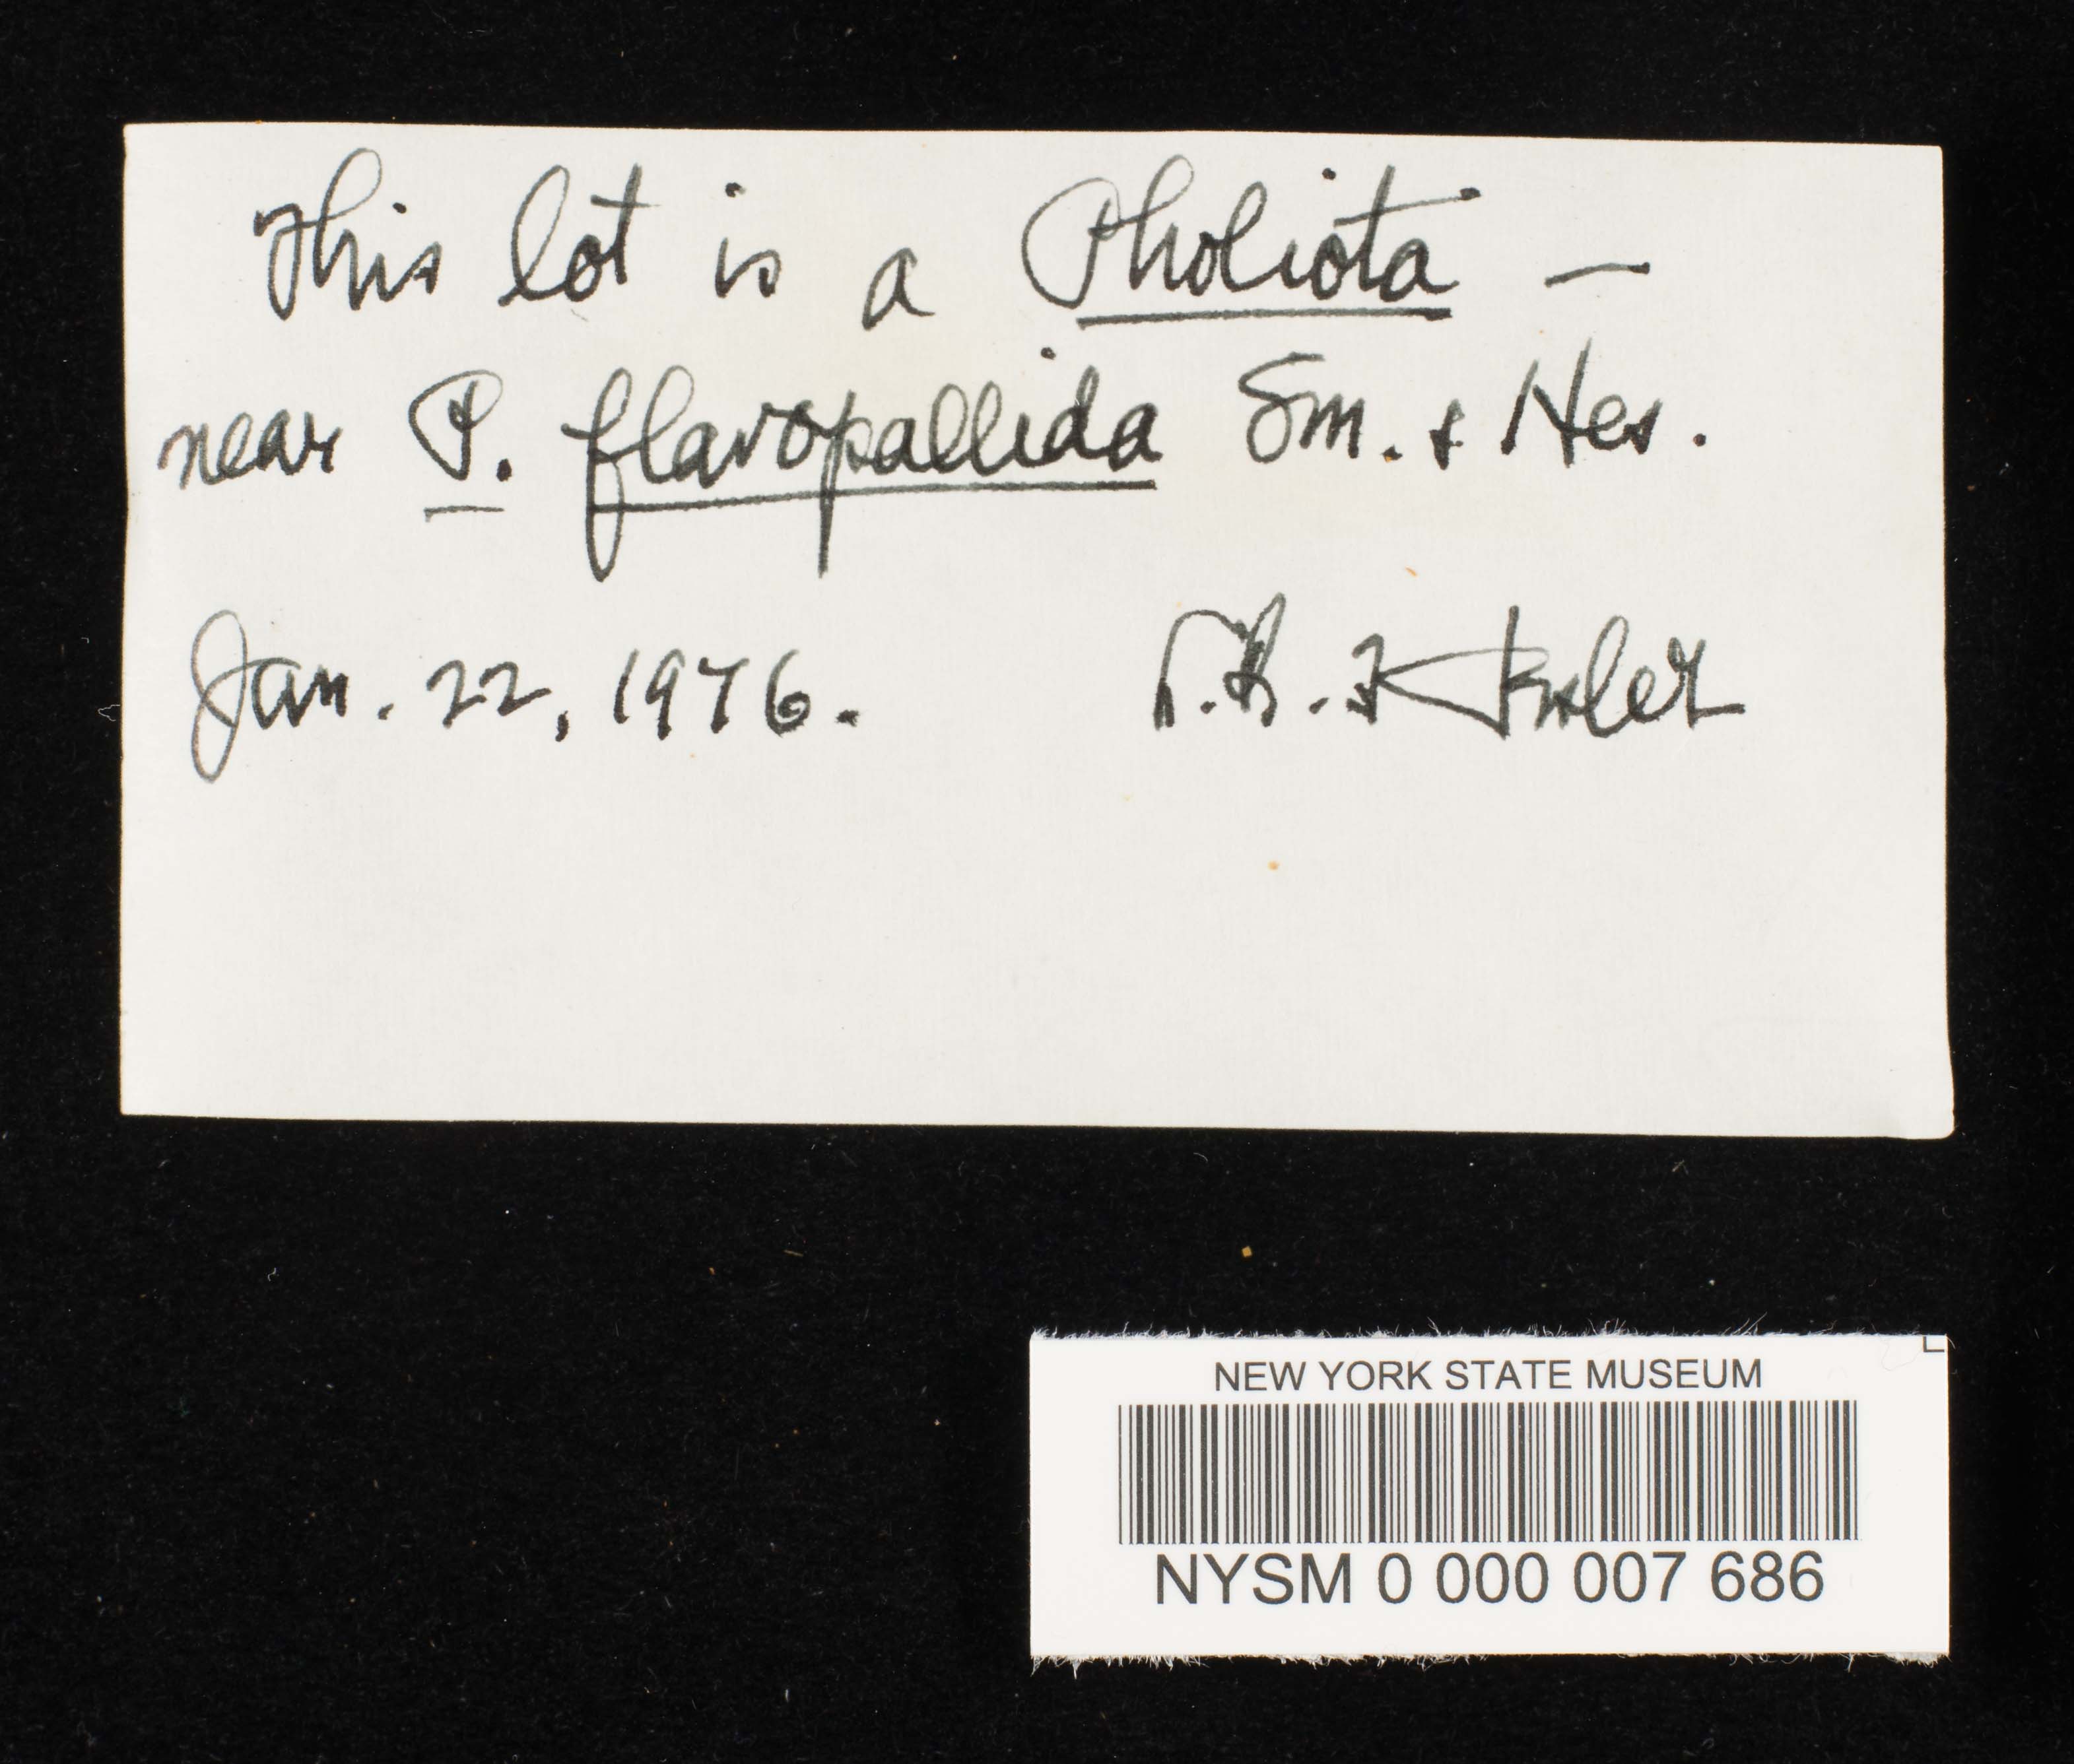 This lot is a Pholiota —
near P. flavopallida Sm. & Hes.
Jan. 22, 1976.
NEW YORK STATE MUSEUM
NYSM 0 000 007 686